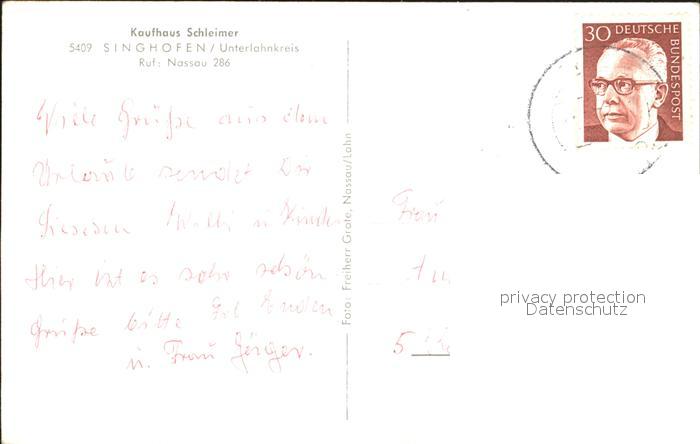 Kaufhaus Schleimer
5409 SINGHOFEN/Unterlahnkreis
Ruf: Nassau 286
30 DEUTSCHE
BUNDESPOST
Viele Grüße aus dem
Urlaub sendet Dir
Willi u. Kinder
Hier ist es sehr schön
Grüße bitte Frl
u. Frau
Foto: Freiherr Grote, Nassau/Lahn
Frau
5
privacy protection
Datenschutz